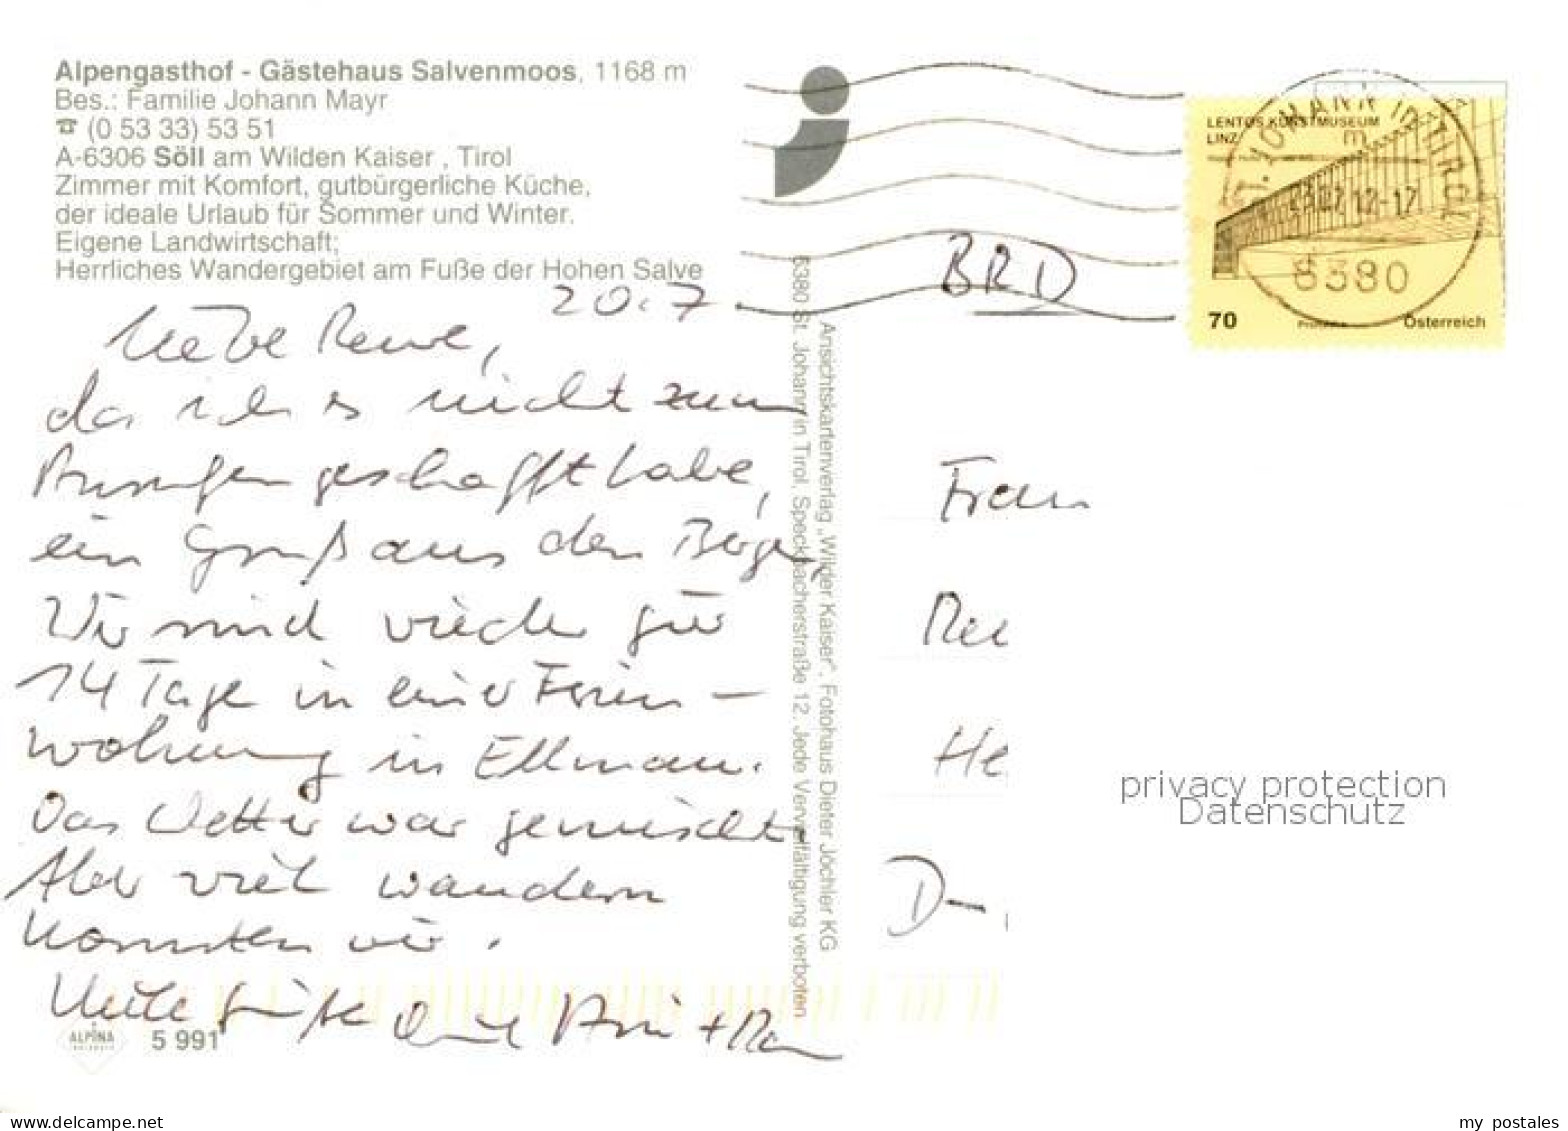 Alpengasthof - Gästehaus Salvenmoos, 1168 m
Bes.: Familie Johann Mayr
☎ (0 53 33) 53 51
A-6306 Söll am Wilden Kaiser , Tirol
Zimmer mit Komfort, gutbürgerliche Küche,
der ideale Urlaub für Sommer und Winter.
Eigene Landwirtschaft;
Herrliches Wandergebiet am Fuße der Hohen Salve
20.7
Liebe
da ich es nicht zum
geschafft habe,
ein Gruß aus den Bergen,
Wir sind wieder für
14 Tage in einer Ferien-
wohnung in Ellmau.
Das Wetter war gemischt.
Aber viel wandern
konnten wir.
Viele Grüße
ALPINA
5 991
Ansichtskartenverlag „Wilder Kaiser", Fotohaus Dieter Jöchler KG
6380 St. Johann in Tirol, Speckbacherstraße 12. Jede Vervielfältigung verboten
BRD
LENTOS KUNSTMUSEUM
LINZ
ST. JOHANN in TIROL
6380
70
Österreich
Frau
He
D-
privacy protection
Datenschutz
www.delcampe.net
my_postales